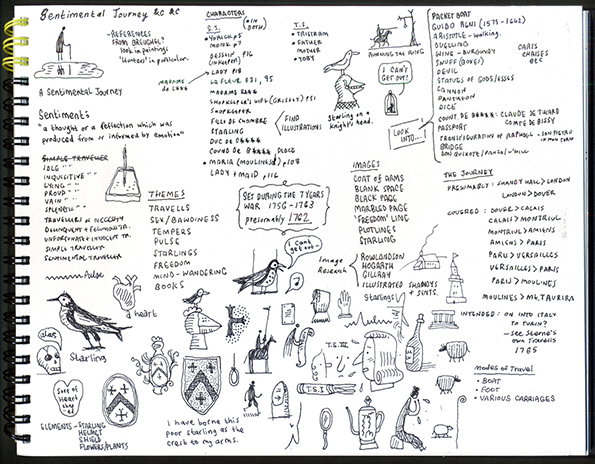 Sentimental Journey &c &c
- REFERENCES
FROM BREUGHEL?
look in paintings
"Hunters" in particular.
A Sentimental Journey
Sentiments
"a thought or a reflection which was
produced from or informed by emotion"
SIMPLE TRAVELLER
IDLE " "
INQUISITIVE " "
LYING " "
PROUD " "
VAIN " "
SPLENETIC " "
TRAVELLERS OF NECESSITY
DELINQUENT & FELONIOUS TR.
UNFORTUNATE & INNOCENT TR.
SIMPLE TRAVELLER
SENTIMENTAL TRAVELLER
Pulse
heart
Starling
alas
Sort of
Heart
shaped
ELEMENTS - STARLING
HELMET
SHIELD
FLOWERS/PLANTS
CHARACTERS
S.S.
IN BOTH
YORICK p5
MONK p7
DESSEIN p16
(INKEEPER)
LADY p18
MADAME
de L***
LA FLEUR p31, 95
MADAME RAN*
SHOPKEEPER'S WIFE (GRISSET) p51
SHOPKEEPER
FILLE DE CHAMBRE
STARLING
DUC DE B****
COUNT DE B****
MARIA (MOULINES) p108
LADY + MAID p116
FIND
ILLUSTRATIONS
T.S.
TRISTRAM
FATHER
MOTHER
TOBY
Starling on a
Knight's head.
RUNNING THE RING
I CAN'T
GET OUT!
LOOK
INTO....
THEMES
TRAVELS
SEX/BAWDINESS
TEMPERS
PULSE
STARLINGS
FREEDOM
MIND-WANDERING
BOOKS
SET DURING THE 7 YEARS
WAR 1756-1763
presumably 1762
I can't
get out
Image
Research
IMAGES
COAT OF ARMS
BLANK SPACE
BLACK PAGE
MARBLED PAGE
'FREEDOM' LINE
PLOTLINES
STARLING
ROWLANDSON
HOGARTH
GILLRAY
ILLUSTRATED SHANDYS
+ SENTS.
Starlings!
T.S. III
T.S.I
I have borne this
poor starling as the
crest to my arms.
PACKET BOAT
GUIDO RENI (1575-1642)
ARISTOTLE - walking.
DUELLING
WINE - BURGUNDY
SNUFF (BOXES)
DEVIL
STATUES OF GODS/ESSES
CANNON
PANTHEON
DICE
CARTS
CHAISES
etc
COUNT DE B**** : CLAUDE DE THIARD
COMTE DE BISSY
PASSPORT
TRANSFIGURATION OF RAPHAEL
BRIDGE
THE JOURNEY
PRESUMABLY: SHANDY HALL > LONDON
LONDON > DOVER
COVERED : DOVER > CALAIS
CALAIS > MONTRIUL
MONTRIUL > AMIENS
AMIENS > PARIS
PARIS > VERSAILLES
VERSAILLES > PARIS
PARIS > MOULINES
MOULINES > Mt. TAURIRA
INTENDED : ON INTO ITALY
TO TURIN?
- see Sterne's
own Travels
1765
MODES OF TRAVEL
• BOAT
• FOOT
• VARIOUS CARRIAGES